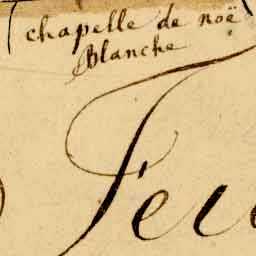 chapelle de noë
Blanche